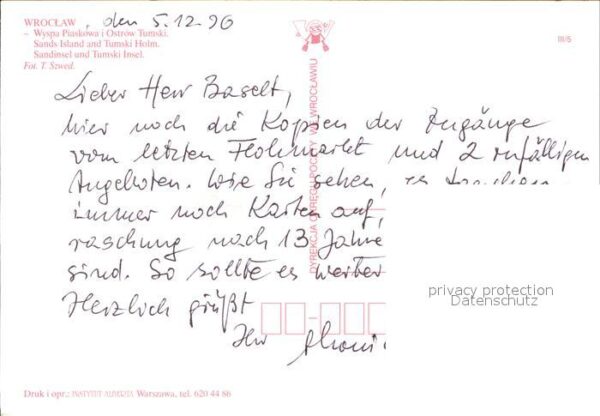 WROCŁAW, den 5.12.96
– Wyspa Piaskowa i Ostrów Tumski.
Sands Island and Tumski Holm.
Sandinsel und Tumski Insel.
Fot. T. Szwed.
III/5
Lieber Herr Baselt,
hier noch die Kopien der Zugänge
vom letzten Flohmarkt und 2 zufälligen
Angeboten. Wie Sie sehen, es
immer noch Karten auf,
raschung nach 13 Jahre
sind. So sollte es weiter
Herzlich grüßt
Ihr
DYREKCJA OKRĘGU POCZTY WE WROCŁAWIU
privacy protection
Datenschutz
Druk i opr.: INSTYTUT Warszawa, tel. 620 44 86